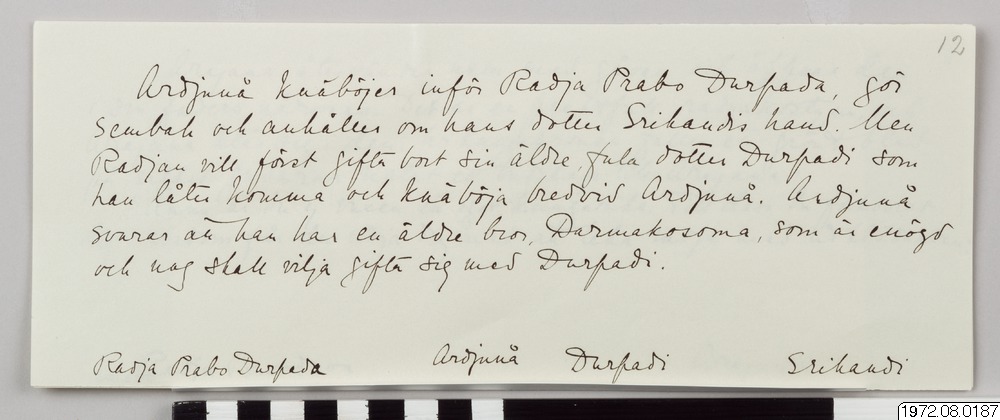 12
Ardjunå knäböjer inför Radja Prabo Durpada, gör
sembah och anhåller om hans dotter Srikandis hand. Men
Radjan vill först gifta bort sin äldre, fula dotter Durpadi som
han låter komma och knäböja bredvid Ardjunå. Ardjunå
svarar att han har en äldre bror, Darmakosoma, som är enögd
och nog skall vilja gifta sig med Durpadi.
Radja Prabo Durpada Ardjunå Durpadi Srikandi
1972.08.0187